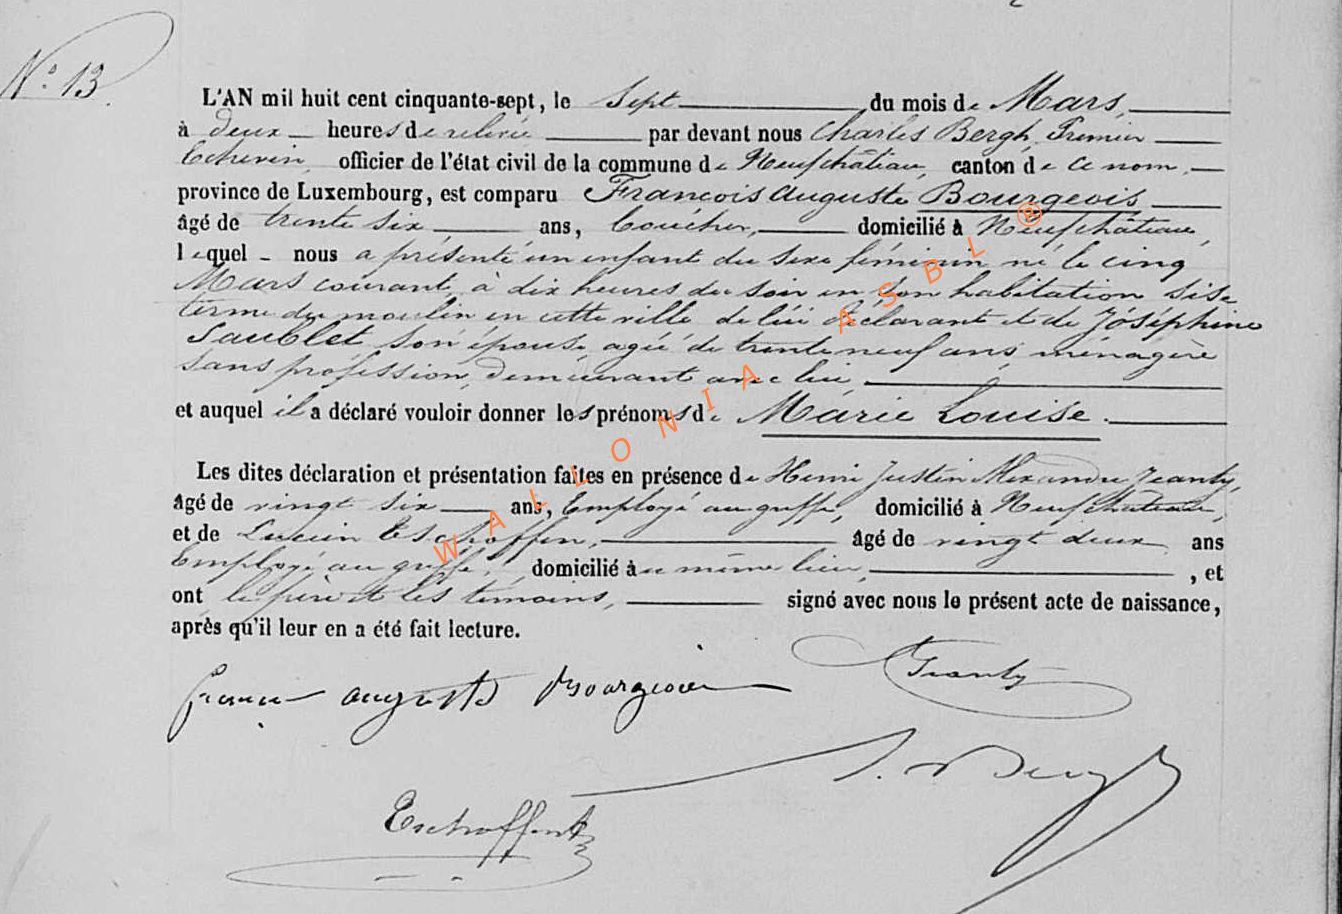 N.° 13
L'AN mil huit cent cinquante-sept, le Sept du mois de Mars,
à deux heures de relevée par devant nous Charles Bergh, Premier
Echevin, officier de l'état civil de la commune de Neufchâteau, canton de ce nom,
province de Luxembourg, est comparu François Auguste Bourgeois
âgé de trente six ans, domicilié à Neufchâteau,
lequel nous a présenté un enfant du sexe féminin né le cinq
Mars courant à dix heures du soir en son habitation sise
du moulin en cette ville de lui déclarant et de Joséphine
Saublet son épouse agée de trente neuf ans, ménagère
sans profession, demeurant avec lui,
et auquel il a déclaré vouloir donner les prénoms de Marie Louise.
Les dites déclaration et présentation faites en présence de Henri Justin Alexandre Jeanty
âgé de vingt six ans, Employé au greffe, domicilié à Neufchâteau,
et de Lucien Eschoffen, âgé de vingt deux ans
Employé au greffe, domicilié au même lieu, , et
ont le père et les témoins, signé avec nous le présent acte de naissance,
après qu'il leur en a été fait lecture.
auguste Bourgeois
Jeanty
Bergh
WALLONIA ASBL ®